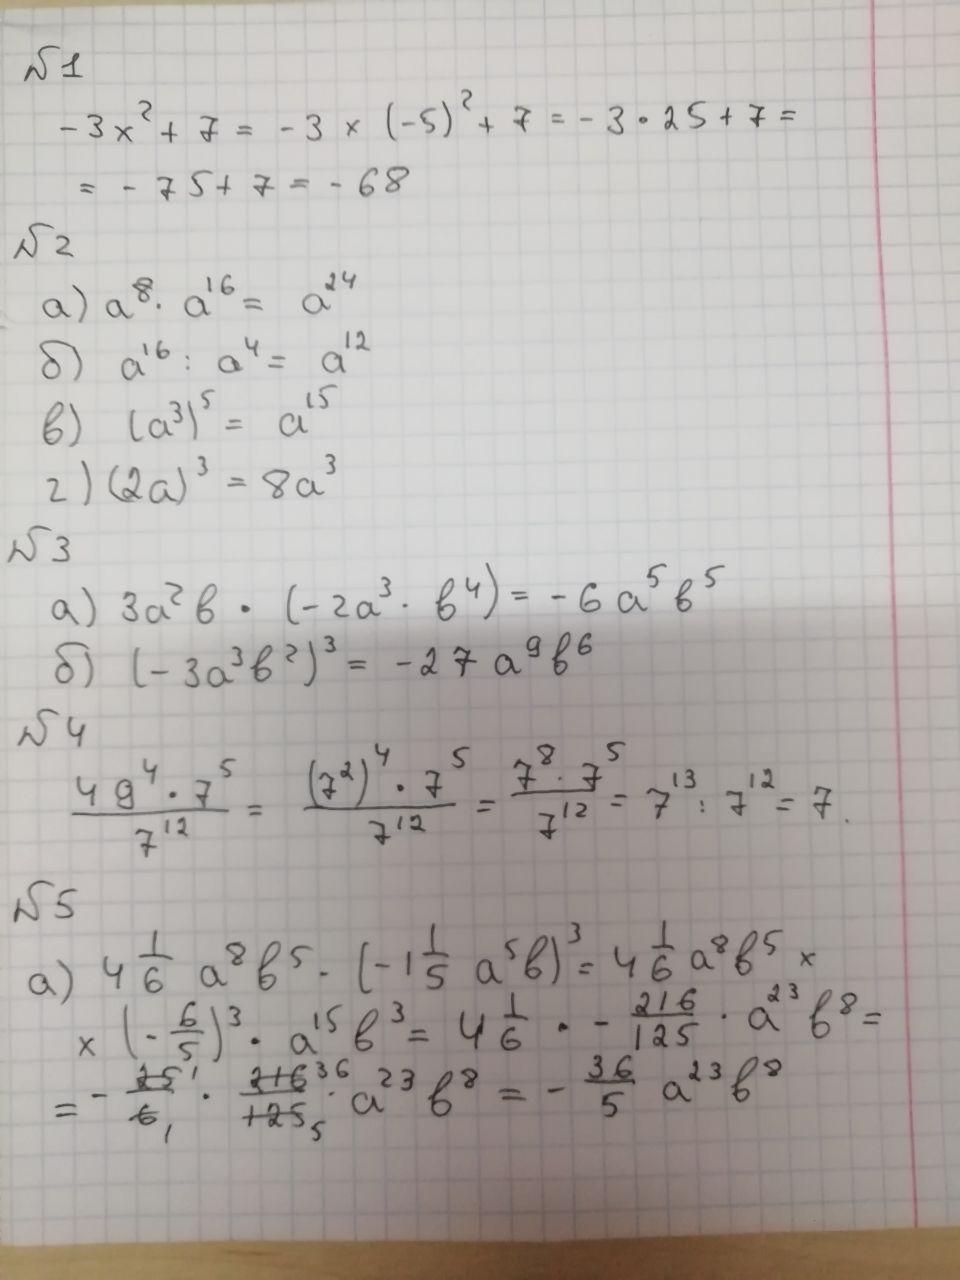 №1
-3x² + 7 = -3 × (-5)² + 7 = -3 · 25 + 7 =
= -75 + 7 = -68
№2
а) a⁸ · a¹⁶ = a²⁴
б) a¹⁶ : a⁴ = a¹²
в) (a³)⁵ = a¹⁵
г) (2a)³ = 8a³
№3
а) 3a²b · (-2a³ · b⁴) = -6a⁵b⁵
б) (-3a³b²)³ = -27a⁹b⁶
№4
49⁴ · 7⁵ / 7¹² = (7²)⁴ · 7⁵ / 7¹² = 7⁸ · 7⁵ / 7¹² = 7¹³ : 7¹² = 7.
№5
а) 4 1/6 a⁸b⁵ · (-1 1/5 a⁵b)³ = 4 1/6 a⁸b⁵ ×
× (-6/5)³ · a¹⁵b³ = 4 1/6 · - 216/125 · a²³b⁸ =
= - 25 1/6 1 · 216 36/125 5 · a²³b⁸ = - 36/5 a²³b⁸